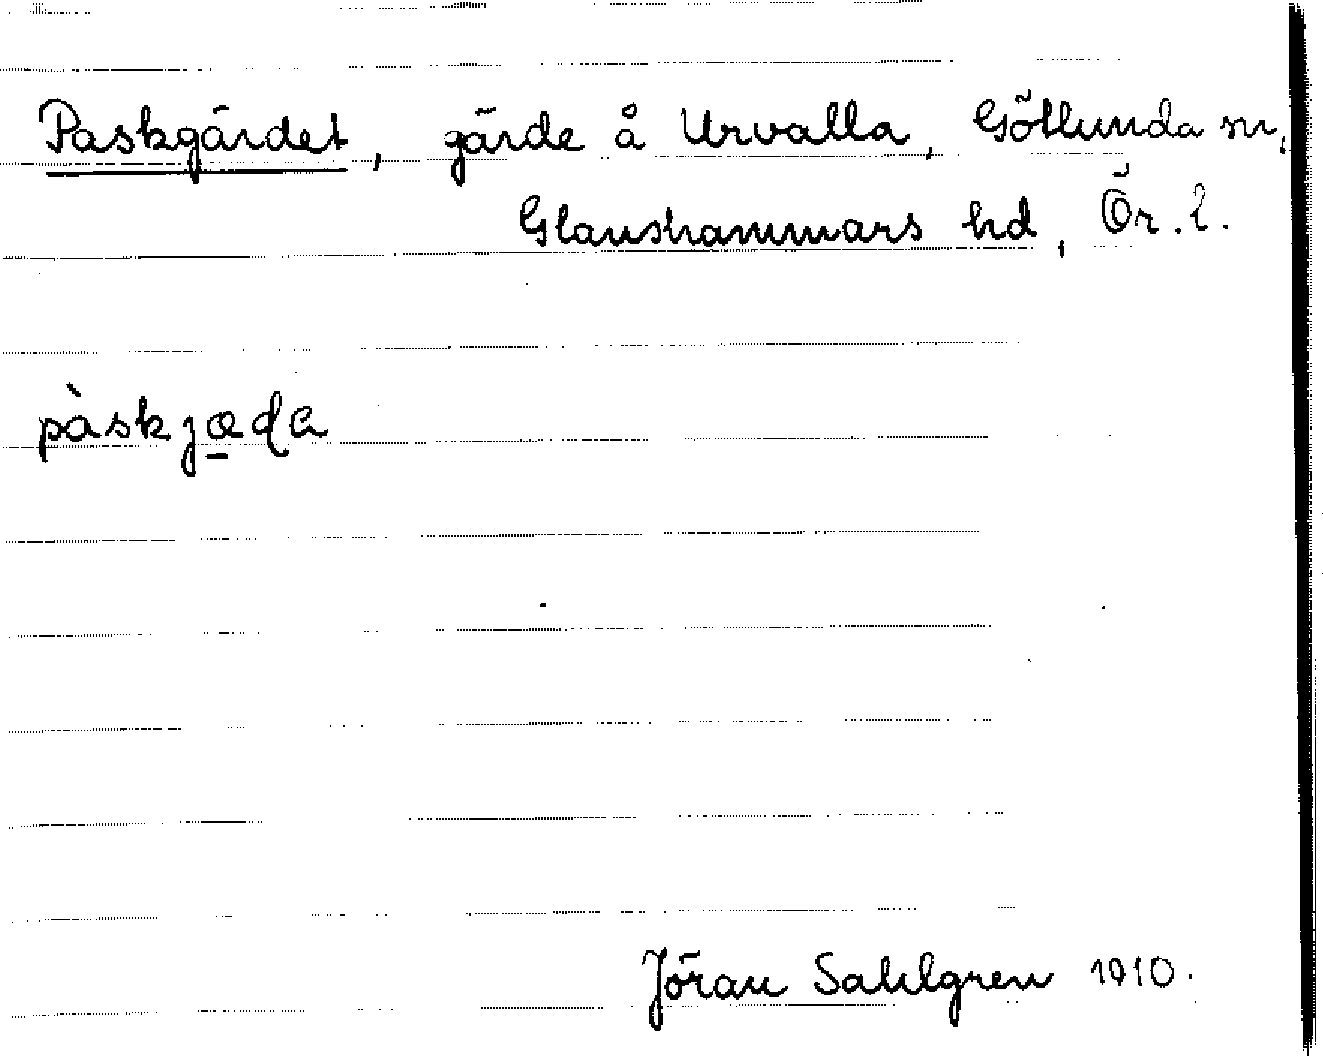 Paskgärdet, gärde å Urvalla, Götlunda sn,
Glanshammars hd, Ör. l.
pàskjæ̱da
Jöran Sahlgren 1910.